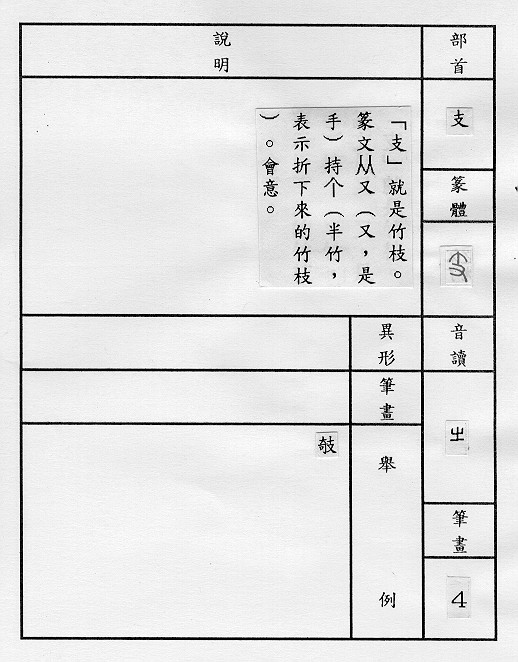 部首
支
篆體
音讀
ㄓ
筆畫
4
說明
「支」就是竹枝。
篆文从又（又，是
手）持个（半竹，
表示折下來的竹枝
）。會意。
異形
筆畫
舉例
攲